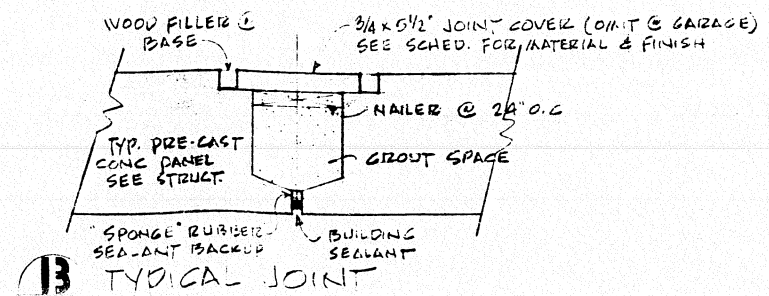 WOOD FILLER @
BASE
3/4 x 5 1/2" JOINT COVER (OMIT @ GARAGE)
SEE SCHED. FOR MATERIAL & FINISH
NAILER @ 24" O.C
TYP. PRE-CAST
CONC PANEL
SEE STRUCT.
GROUT SPACE
"SPONGE" RUBBER
SEALANT BACKUP
BUILDING
SEALANT
13 TYPICAL JOINT